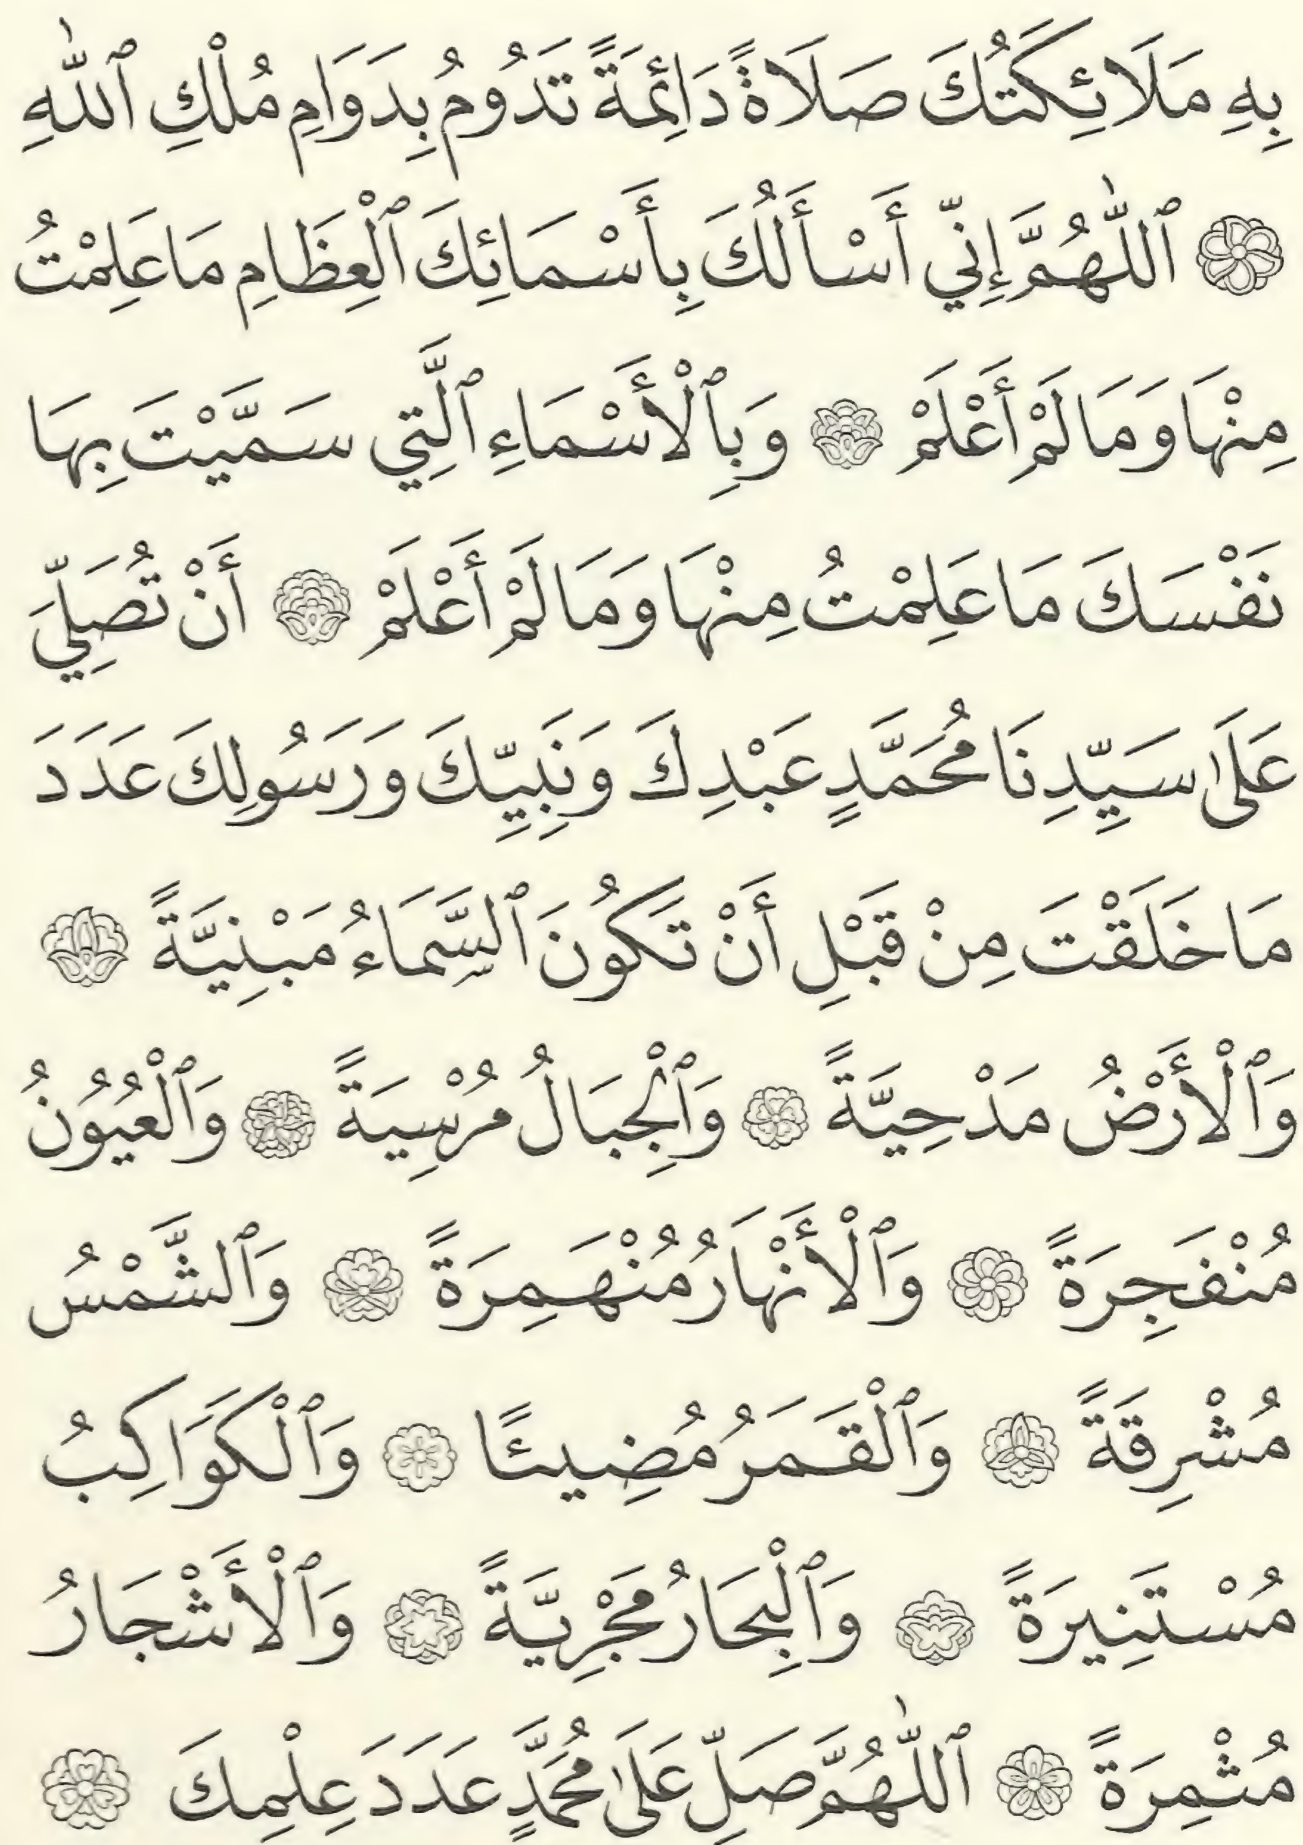 بِهِ مَلَائِكَتُكَ صَلَاةً دَائِمَةً تَدُومُ بِدَوَامِ مُلْكِ ٱللّٰهِ
۞ ٱللّٰهُمَّ إِنِّي أَسْأَلُكَ بِأَسْمَائِكَ ٱلْعِظَامِ مَا عَلِمْتُ
مِنْهَا وَمَا لَمْ أَعْلَمْ ۞ وَبِٱلْأَسْمَاءِ ٱلَّتِي سَمَّيْتَ بِهَا
نَفْسَكَ مَا عَلِمْتُ مِنْهَا وَمَا لَمْ أَعْلَمْ ۞ أَنْ تُصَلِّيَ
عَلَىٰ سَيِّدِنَا مُحَمَّدٍ عَبْدِكَ وَنَبِيِّكَ وَرَسُولِكَ عَدَدَ
مَا خَلَقْتَ مِنْ قَبْلِ أَنْ تَكُونَ ٱلسَّمَاءُ مَبْنِيَّةً ۞
وَٱلْأَرْضُ مَدْحِيَّةً ۞ وَٱلْجِبَالُ مُرْسِيَةً ۞ وَٱلْعُيُونُ
مُنْفَجِرَةً ۞ وَٱلْأَنْهَارُ مُنْهَمِرَةً ۞ وَٱلشَّمْسُ
مُشْرِقَةً ۞ وَٱلْقَمَرُ مُضِيئًا ۞ وَٱلْكَوَاكِبُ
مُسْتَنِيرَةً ۞ وَٱلْبِحَارُ مَجْرِيَّةً ۞ وَٱلْأَشْجَارُ
مُثْمِرَةً ۞ ٱللّٰهُمَّ صَلِّ عَلَىٰ مُحَمَّدٍ عَدَدَ عِلْمِكَ ۞